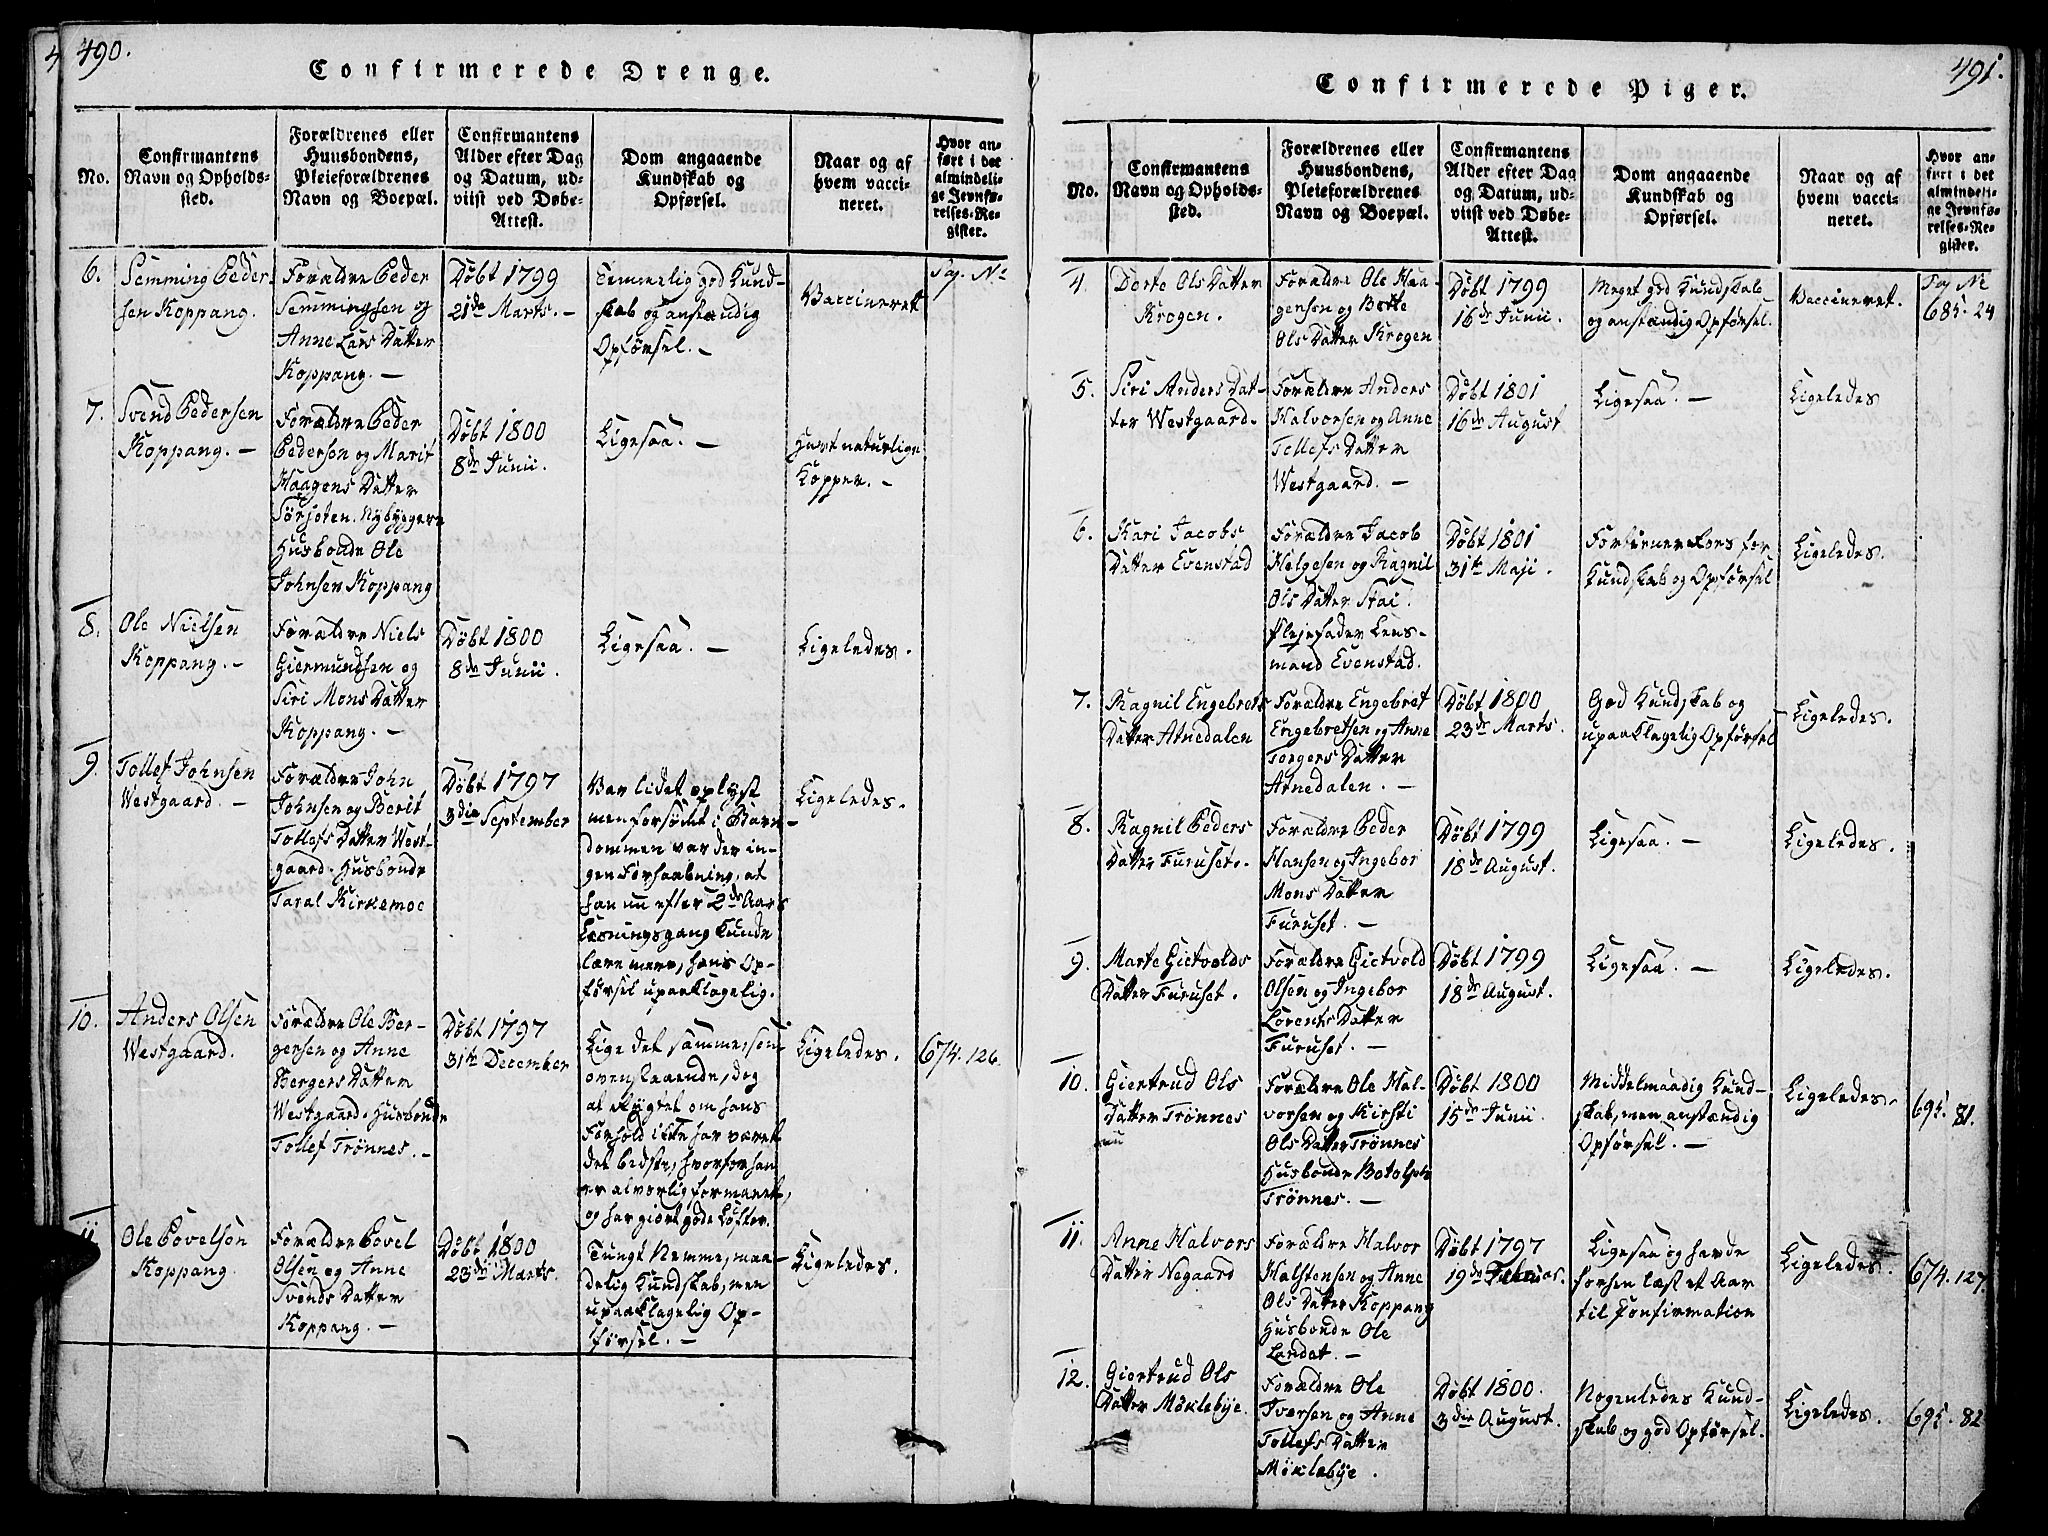 490.
Confirmerede Drenge.
No.
Confirmantens
Navn og Opholds-
sted.
Forældrenes eller
Huusbondens,
Pleieforældrenes
Navn og Boepæl.
Confirmantens
Alder efter Dag
og Datum, ud-
viist ved Døbe-
Attest.
Dom angaaende
Kundskab og
Opførsel.
Naar og af
hvem vacci-
neret.
Hvor an-
ført i det
almindeli-
ge Jevnfø-
relses-Re-
gister.
Pag. No
6.
Semming Peder-
sen Koppang.
Forældre Peder
Semmingsen og
Anne Lars Datter
Koppang. —
Døbt 1799
21de Marts. —
Temmelig god Kund-
skab og anstændig
Opførsel. —
Vaccineret
7.
Svend Pedersen
Koppang. —
Forældre Peder
Pedersen og Marit
Haagens Datter
Sørjoten. Nybyggere
Husbonde Ole
Johnsen Koppang
Døbt 1800
8de Junii.
Ligesaa. —
Havt naturlige
Kopper. —
8.
Ole Nielsen
Koppang. —
Forældre Niels
Giermundsen og
Siri Mons Datter
Koppang. —
Døbt 1800
8de Junii.
Ligesaa. —
Ligeledes.
9.
Tollef Johnsen
Westgaard. —
Forældre John
Johnsen og Berit
Tollefs Datter West-
gaard. Husbonde
Taral Kirkemoe
Døbt 1797
3die September
Var lidet oplyst
men forsømt i Barn-
dommen var der in-
gen Forhaabning, at
han nu efter 2de Aars
Læsningsgang kunde
lære mere, hans Op-
førsel upaaklagelig.
Ligeledes.
10.
Anders Olsen
Westgaard.
Forældre Ole Ber-
gersen og Anne
Bergers Datter
Westgaard. Husbonde
Tollef Trønnes. —
Døbt 1797
31te December
Lige det samme som
ovenstaaende, dog
at rygtet om hans
Forhold ikke har været
det bedste, hvorfor han
er alvorlig formanet,
og har giort gode Løfter.
Ligeledes.
674. 126.
11
Ole Povelsen
Koppang.
Forældre Povel
Olsen og Anne
Svends Datter
Koppang. —
Døbt 1800
23de Marts.
Tungt Nemme, maa-
delig Kundskab, men
upaaklagelig Op-
førsel. —
Ligeledes.
491.
Confirmerede Piger.
No.
Confirmantens
Navn og Opholds-
sted.
Forældrenes eller
Huusbondens,
Pleieforældrenes
Navn og Boepæl.
Confirmantens
Alder efter Dag
og Datum, ud-
viist ved Døbe-
Attest.
Dom angaaende
Kundskab og
Opførsel.
Naar og af
hvem vacci-
neret.
Hvor an-
ført i det
almindeli-
ge Jevnfø-
relses-Re-
gister.
Pag No
4.
Dorte Ols Datter
Krogen.
Forældre Ole Haa-
gensen og Berte
Ols Datter Krogen
Døbt 1799
16de Junii.
Meget god Kundskab
og anstændig Opførsel.
Vaccineret.
685. 24
5.
Siri Anders Dat-
ter Westgaard.
Forældre Anders
Halvorsen og Anne
Tollefs Datter
Westgaard. —
Døbt 1801
16de August
Ligesaa. —
Ligeledes
6.
Kari Jacobs
Datter Evenstad
Forældre Jacob
Helgesen og Ragnil
Ols Datter Stai.
Plejefader Lens-
mand Evenstad.
Døbt 1801
31te Maji.
Fortiener Roes for
Kundskab og Opførsel
Ligeledes.
7.
Ragnil Engebrets
Datter Atnedalen
Forældre Engebret
Engebretsen og Anne
Torgers Datter
Atnedalen. —
Døbt 1800
23de Marts.
God Kundskab og
upaaklagelig Opførsel
Ligeledes.
8.
Ragnil Peders
Datter Furuset.
Forældre Peder
Hansen og Ingebor
Mons Datter
Furuset. —
Døbt 1799
18de August.
Ligesaa. —
Ligeledes.
9.
Marte Gietvolds
Datter Furuset.
Forældre Gietvold
Olsen og Ingebor
Lorents Datter
Furuset. —
Døbt 1799
18de August.
Ligesaa. —
Ligeledes.
10.
Giertrud Ols
Datter Trønnes
Forældre Ole Hal-
vorsen og Kirsti
Ols Datter Trønnes
Husbonde Botolph
Trønnes. —
Døbt 1800
15de Junii
Middelmaadig Kund-
skab, men anstændig
Opførsel. —
Ligeledes.
695. 81.
11.
Anne Halvors
Datter Nogaard
Forældre Halvor
Halstensen og Anne
Ols Datter Koppang
Husbonde Ole
Landet. —
Døbt 1797
19de Februar.
Ligesaa og havde
forhen læst et Aar
til Confirmation
Ligeledes.
674. 127.
12.
Giertrud Ols
Datter Møklebye.
Forældre Ole
Iversen og Anne
Tollefs Datter
Møklebye.
Døbt 1800.
3die August.
Nogenledes Kund-
skab og god Opførsel.
Ligeledes.
695. 82